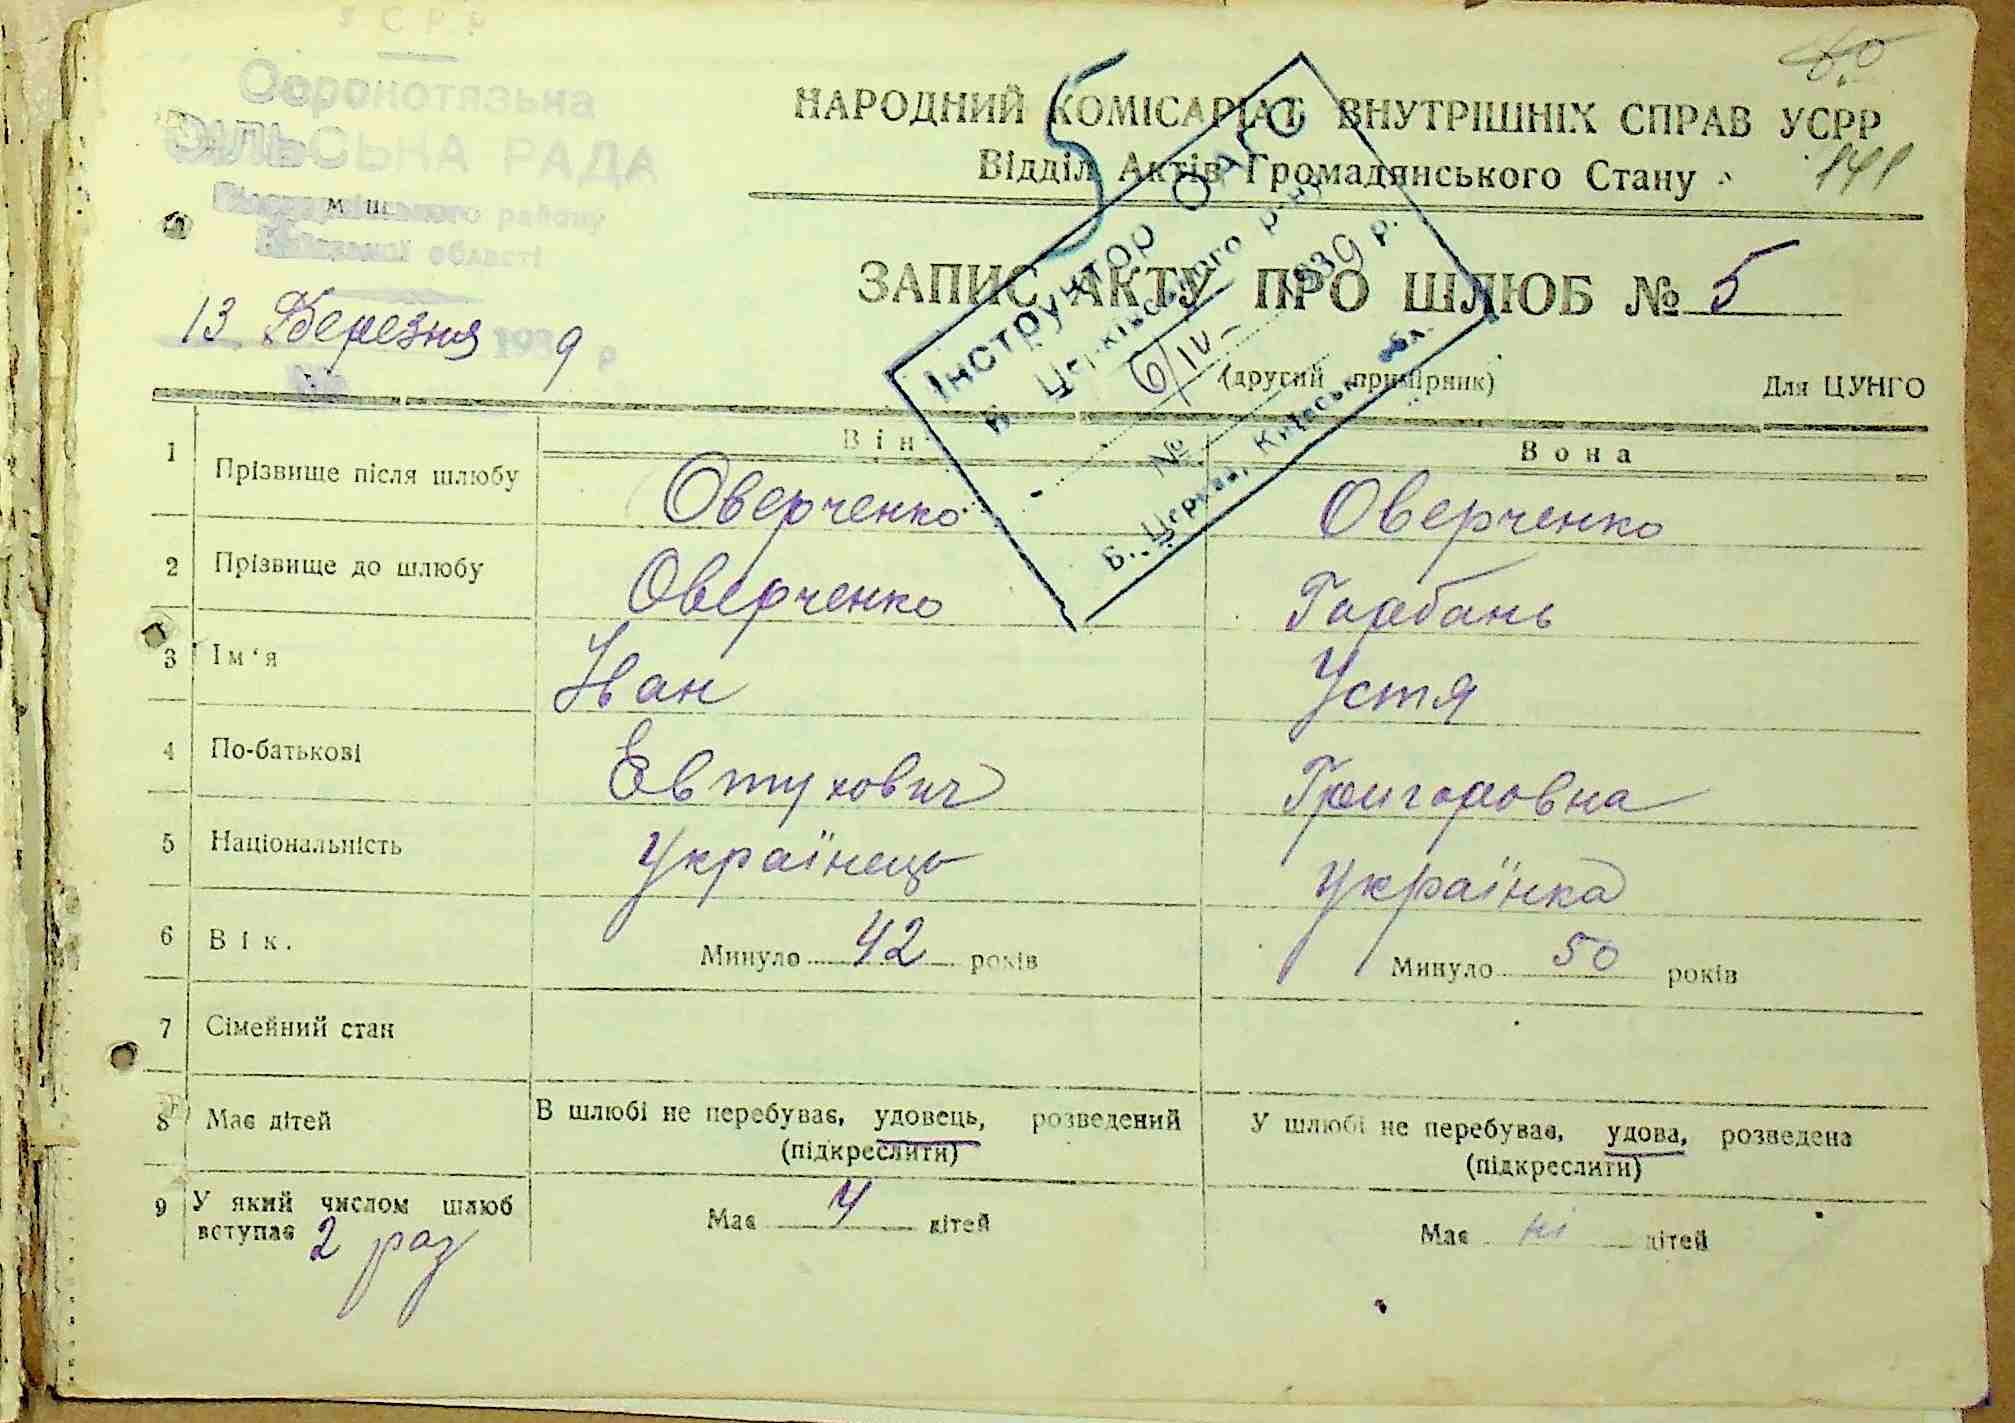 УСРР
Соронотязьна
СІЛЬСЬКА РАДА
району
області
13 Березня 1939 р
№
80
НАРОДНИЙ КОМІСАРІАТ ВНУТРІШНІХ СПРАВ УСРР
Відділ Актів Громадянського Стану
141
5
ЗАПИС АКТУ ПРО ШЛЮБ № 5
(другий примірник) Для ЦУНГО
Інструктор ОАГС
Б. Церківського р-ну
6/IV- 1939 р.
№
Б. Церква, Київськ. обл.
Він Вона
1 Прізвище після шлюбу Оверченко Оверченко
2 Прізвище до шлюбу Оверченко Гарбань
3 Ім'я Іван Устя
4 По-батькові Евтухович Григоровна
5 Національність Українець Українка
6 Вік. Минуло 42 років Минуло 50 років
7 Сімейний стан
8 Має дітей В шлюбі не перебуває, удовець, розведений У шлюбі не перебуває, удова, розведена
(підкреслити) (підкреслити)
9 У який числом шлюб
вступає 2 раз Має 4 дітей Має ні дітей